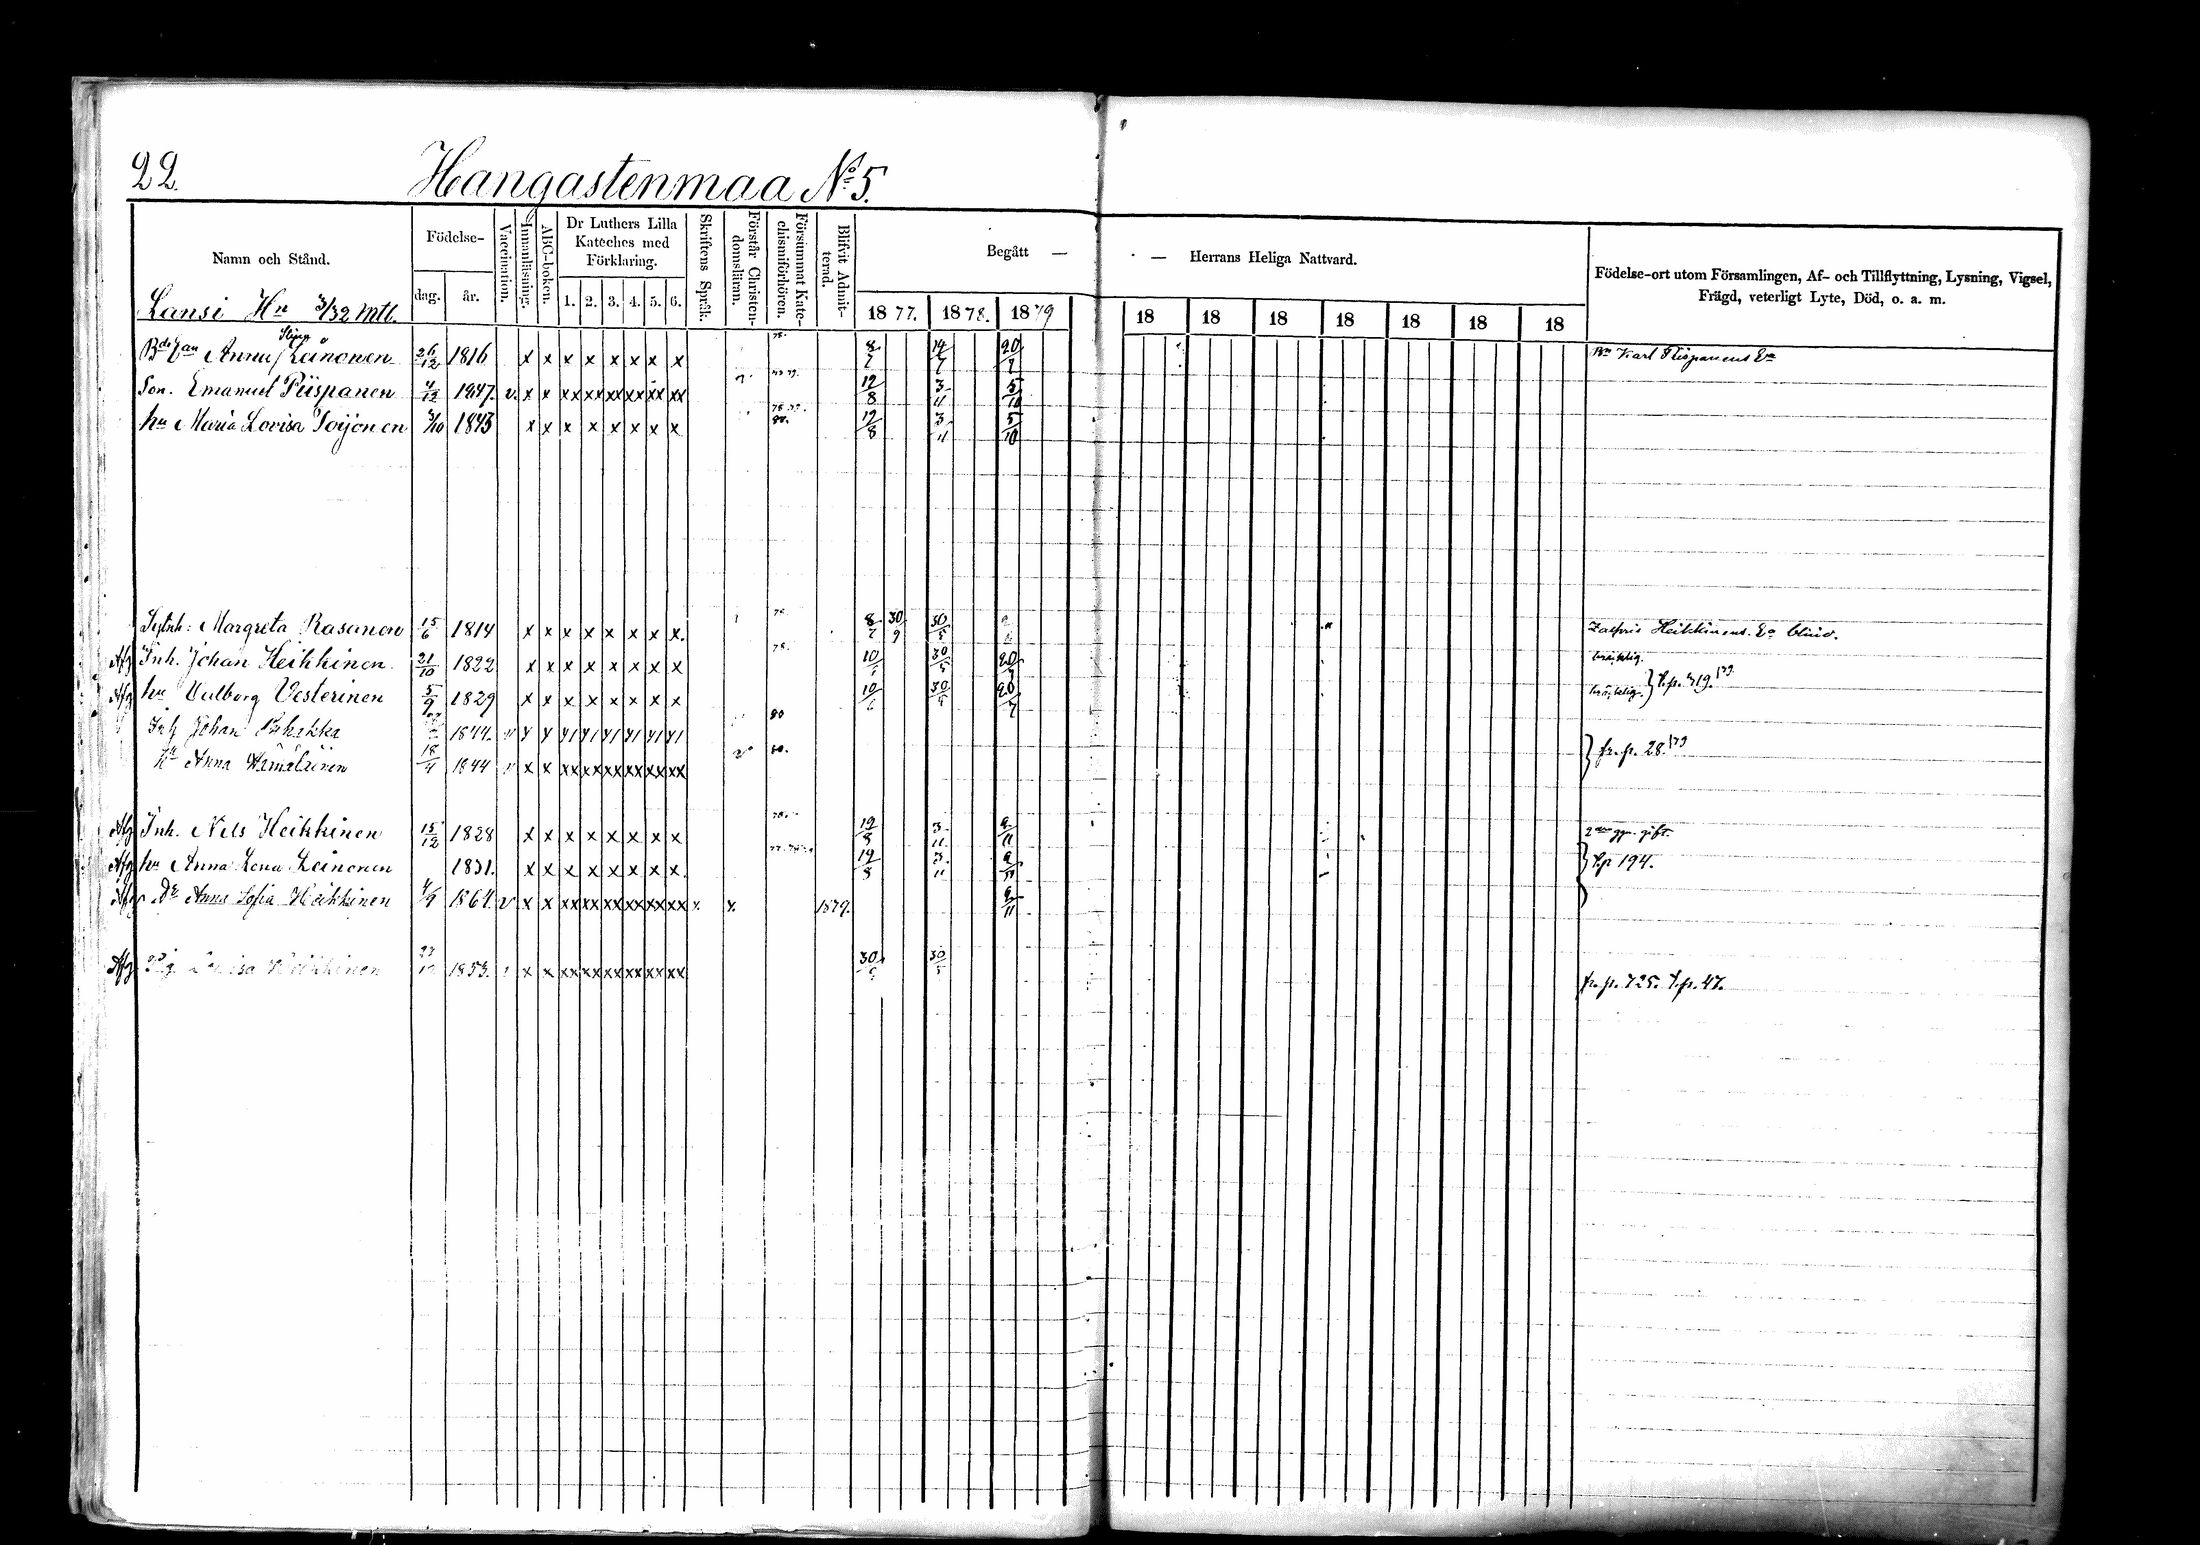 22.
Hangastenmaa No 5.
Namn och Stånd.
Födelse-
dag.
år.
Vaccination.
Innanläsning.
ABC-boken.
Dr Luthers Lilla Kateches med Förklaring.
1. 2. 3. 4. 5. 6.
Skriftens Språk.
Förstår Christendomsläran.
Försummat Katechismiförhören.
Blifvit Admitterad.
Begått — — Herrans Heliga Nattvard.
1877. 1878. 1879 18 18 18 18 18 18 18
Födelse-ort utom Församlingen, Af- och Tillflyttning, Lysning, Vigsel,
Frägd, veterligt Lyte, Död, o. a. m.
Lansi Hn 3/32 mtl.
Anna Stina Leinonen 26/12 1816 x x x x x x x x 8/7 14/7 20/7 Bn Karl Piispanens Ea
Son. Emanuel Piispanen 4/12 1847. v. x x xx xx xx xx xx xx 12/8 3/11 5/10
hu Maria Lovisa Torjonen 3/10 1843 x x x x x x x x 12/8 3/11 5/10
Margreta Rasanen 15/6 1814 x x x x x x x x. 8/7 30/9 30/5 Heikkinens Ea blind.
Afg Inh. Johan Heikkinen 21/10 1822 x x x x x x x x 30/5 20/7 bräcklig.
Afg hu Valborg Vesterinen 5/9 1829 x x x x x x x x 30/5 20/7 bräcklig. } t.p. 419. /79
Inh Johan 1844. 80
hu Anna Hämäläinen 18/4 1844 v x x xx xx xx xx xx xx 80. } fr. p. 28. /79
Afg Inh. Nils Heikkinen 15/12 1828 x x x x x x x x 12/8 3/11 9/11 2dra ggn. gift.
Afg hu Anna Lena Leinonen 1831. x x x x x x x x 12/8 3/11 9/11 } t.p 194.
Afg Dr Anna Sofia Heikkinen 4/9 1864. v x x xx xx xx xx xx xx x. x. 1879. 9/11
Afg Lovisa Heikkinen 1853. x x xx xx xx xx xx xx 30/9 30/5 fr. p. 725. t. p. 47.